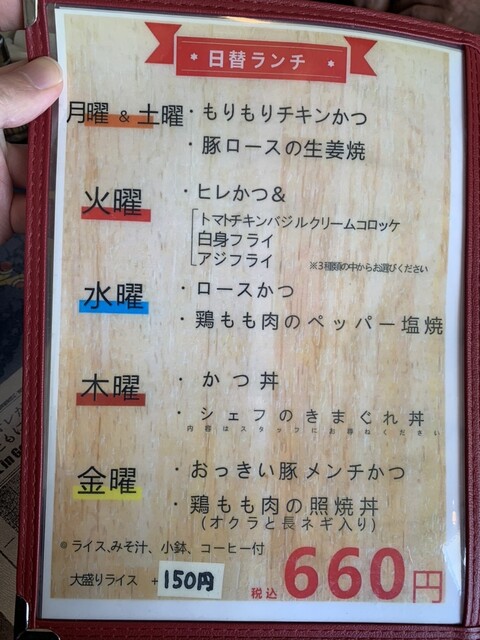 日替ランチ
月曜 & 土曜 ・もりもりチキンかつ
・豚ロースの生姜焼
火曜 ・ヒレかつ&
トマトチキンバジルクリームコロッケ
白身フライ
アジフライ ※3種類の中からお選びください
水曜 ・ロースかつ
・鶏もも肉のペッパー塩焼
木曜 ・かつ丼
・シェフのきまぐれ丼
内容はスタッフにお尋ねください
金曜 ・おっきい豚メンチかつ
・鶏もも肉の照焼丼
(オクラと長ネギ入り)
●ライス、みそ汁、小鉢、コーヒー付
大盛りライス +150円
税込 660円